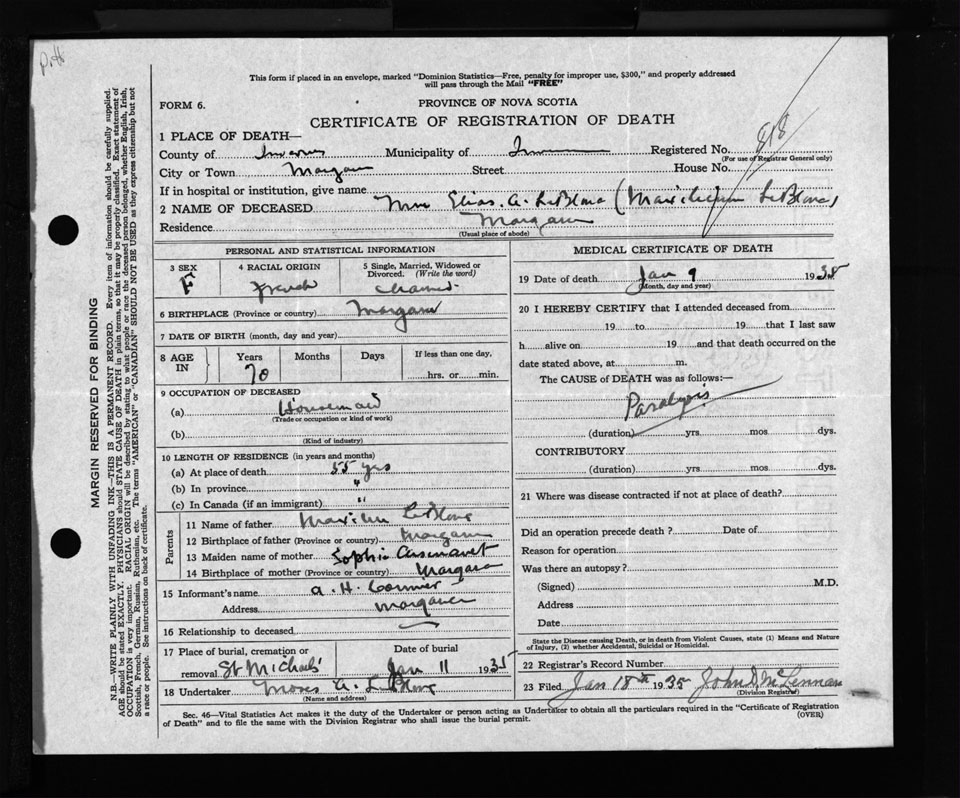 P.H
This form if placed in an envelope, marked "Dominion Statistics—Free, penalty for improper use, $300," and properly addressed
will pass through the Mail "FREE"
FORM 6.
PROVINCE OF NOVA SCOTIA
CERTIFICATE OF REGISTRATION OF DEATH
818
1 PLACE OF DEATH—
County of Inverness Municipality of Registered No.
(For use of Registrar General only)
City or Town Margaree Street House No.
If in hospital or institution, give name
2 NAME OF DECEASED Mrs Elias. A. LeBlanc ( LeBlanc)
Residence Margaree
(Usual place of abode)
PERSONAL AND STATISTICAL INFORMATION
3 SEX 4 RACIAL ORIGIN 5 Single, Married, Widowed or
Divorced. (Write the word)
F French Married
6 BIRTHPLACE (Province or country) Margaree
7 DATE OF BIRTH (month, day and year)
8 AGE IN Years Months Days If less than one day,
70 hrs. or min.
9 OCCUPATION OF DECEASED
(a)
(Trade or occupation or kind of work)
(b)
(Kind of industry)
10 LENGTH OF RESIDENCE (in years and months)
(a) At place of death 55 yrs
(b) In province "
(c) In Canada (if an immigrant) "
Parents
11 Name of father LeBlanc
12 Birthplace of father (Province or country) Margaree
13 Maiden name of mother Sophie Arsenault
14 Birthplace of mother (Province or country) Margaree
15 Informant's name A. H. Cormier
Address Margaree
16 Relationship to deceased
17 Place of burial, cremation or Date of burial
removal St Michaels Jan 11 1935
18 Undertaker Moses A. LeBlanc
(Name and address)
MEDICAL CERTIFICATE OF DEATH
19 Date of death Jan 9 1935
(Month, day and year)
20 I HEREBY CERTIFY that I attended deceased from
19 to 19 that I last saw
h alive on 19 and that death occurred on the
date stated above, at m.
The CAUSE of DEATH was as follows:—
Paralysis
(duration) yrs. mos. dys.
CONTRIBUTORY
(duration) yrs. mos. dys.
21 Where was disease contracted if not at place of death?
Did an operation precede death? Date of
Reason for operation
Was there an autopsy?
(Signed) M.D.
Address
Date
State the Disease causing Death, or in death from Violent Causes, state (1) Means and Nature
of Injury, (2) whether Accidental, Suicidal or Homicidal.
22 Registrar's Record Number
23 Filed Jan 18th 1935 John D McLennan
(Division Registrar)
Sec. 46—Vital Statistics Act makes it the duty of the Undertaker or person acting as Undertaker to obtain all the particulars required in the "Certificate of Registration
of Death" and to file the same with the Division Registrar who shall issue the burial permit.
(OVER)
MARGIN RESERVED FOR BINDING
N.B.—WRITE PLAINLY WITH UNFADING INK—THIS IS A PERMANENT RECORD. Every item of information should be carefully supplied.
AGE should be stated EXACTLY. PHYSICIANS should STATE CAUSE OF DEATH in plain terms, so that it may be properly classified. Exact statement of
OCCUPATION is very important. RACIAL ORIGIN will be described by stating to what people or race the deceased person belonged, whether English, Irish,
Scottish, French, German, Russian, Ruthenian, etc. The terms "AMERICAN" or "CANADIAN" SHOULD NOT BE USED as they express citizenship but not
a race or people. See instructions on back of certificate.